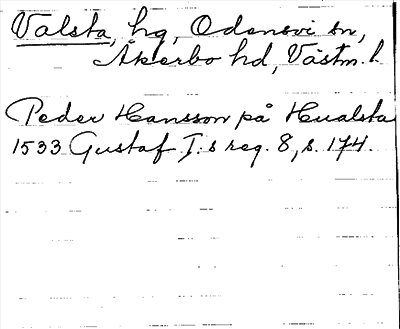 Valsta, hg, Odensvi sn,
Åkerbo hd, Västm. l.
Peder Hansson på Hualsta
1533 Gustaf I:s reg. 8, s. 174.